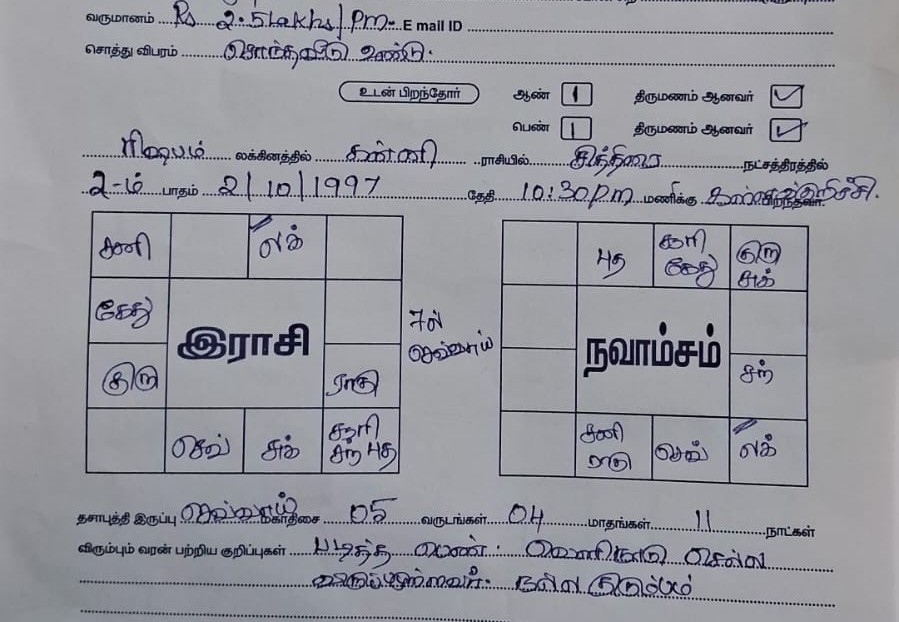 வருமானம் Rs 2.5 lakhs/pm. E mail ID
சொத்து விபரம் சொந்தவீடு உண்டு.
உடன் பிறந்தோர் ஆண் 1 திருமணம் ஆனவர் ✓
பெண் 1 திருமணம் ஆனவர் ✓
ரிஷபம் லக்கினத்தில் கன்னி ராசியில் சித்திரை நட்சத்திரத்தில்
2-ம் பாதம் 2/10/1997 தேதி 10:30pm மணிக்கு பிறந்தவர்.
சனி லக்
கேது
இராசி
குரு ராகு
செவ் சுக் சூரி சந் புத
7ல் செவ்வாய்
புத சூரி கேது குரு சுக்
நவாம்சம்
சந்
சனி ராகு செவ் லக்
தசாபுத்தி இருப்பு செவ்வாய் மகாதிசை 05 வருடங்கள் 04 மாதங்கள் 11 நாட்கள்
விரும்பும் வரன் பற்றிய குறிப்புகள் படித்த பெண். வெளிநாடு செல்ல
விருப்பமுள்ளவர். நல்ல குடும்பம்